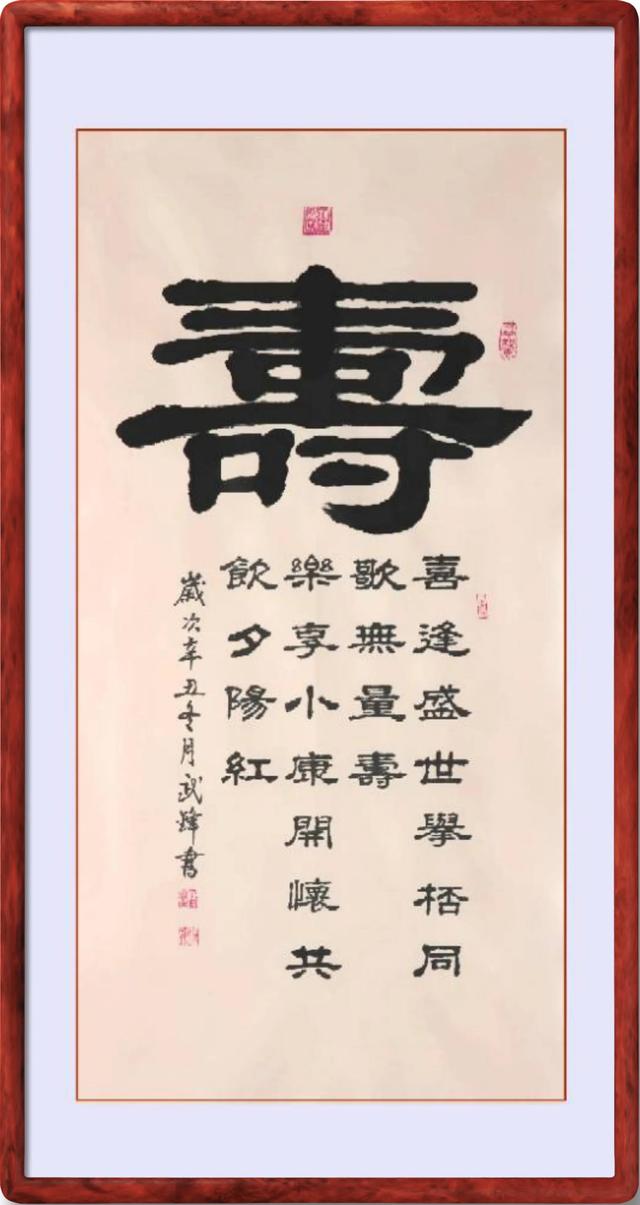 壽
喜逢盛世舉桮同
歌無量壽
樂享小康開懷共
飲夕陽紅
歲次辛丑冬月武烽書